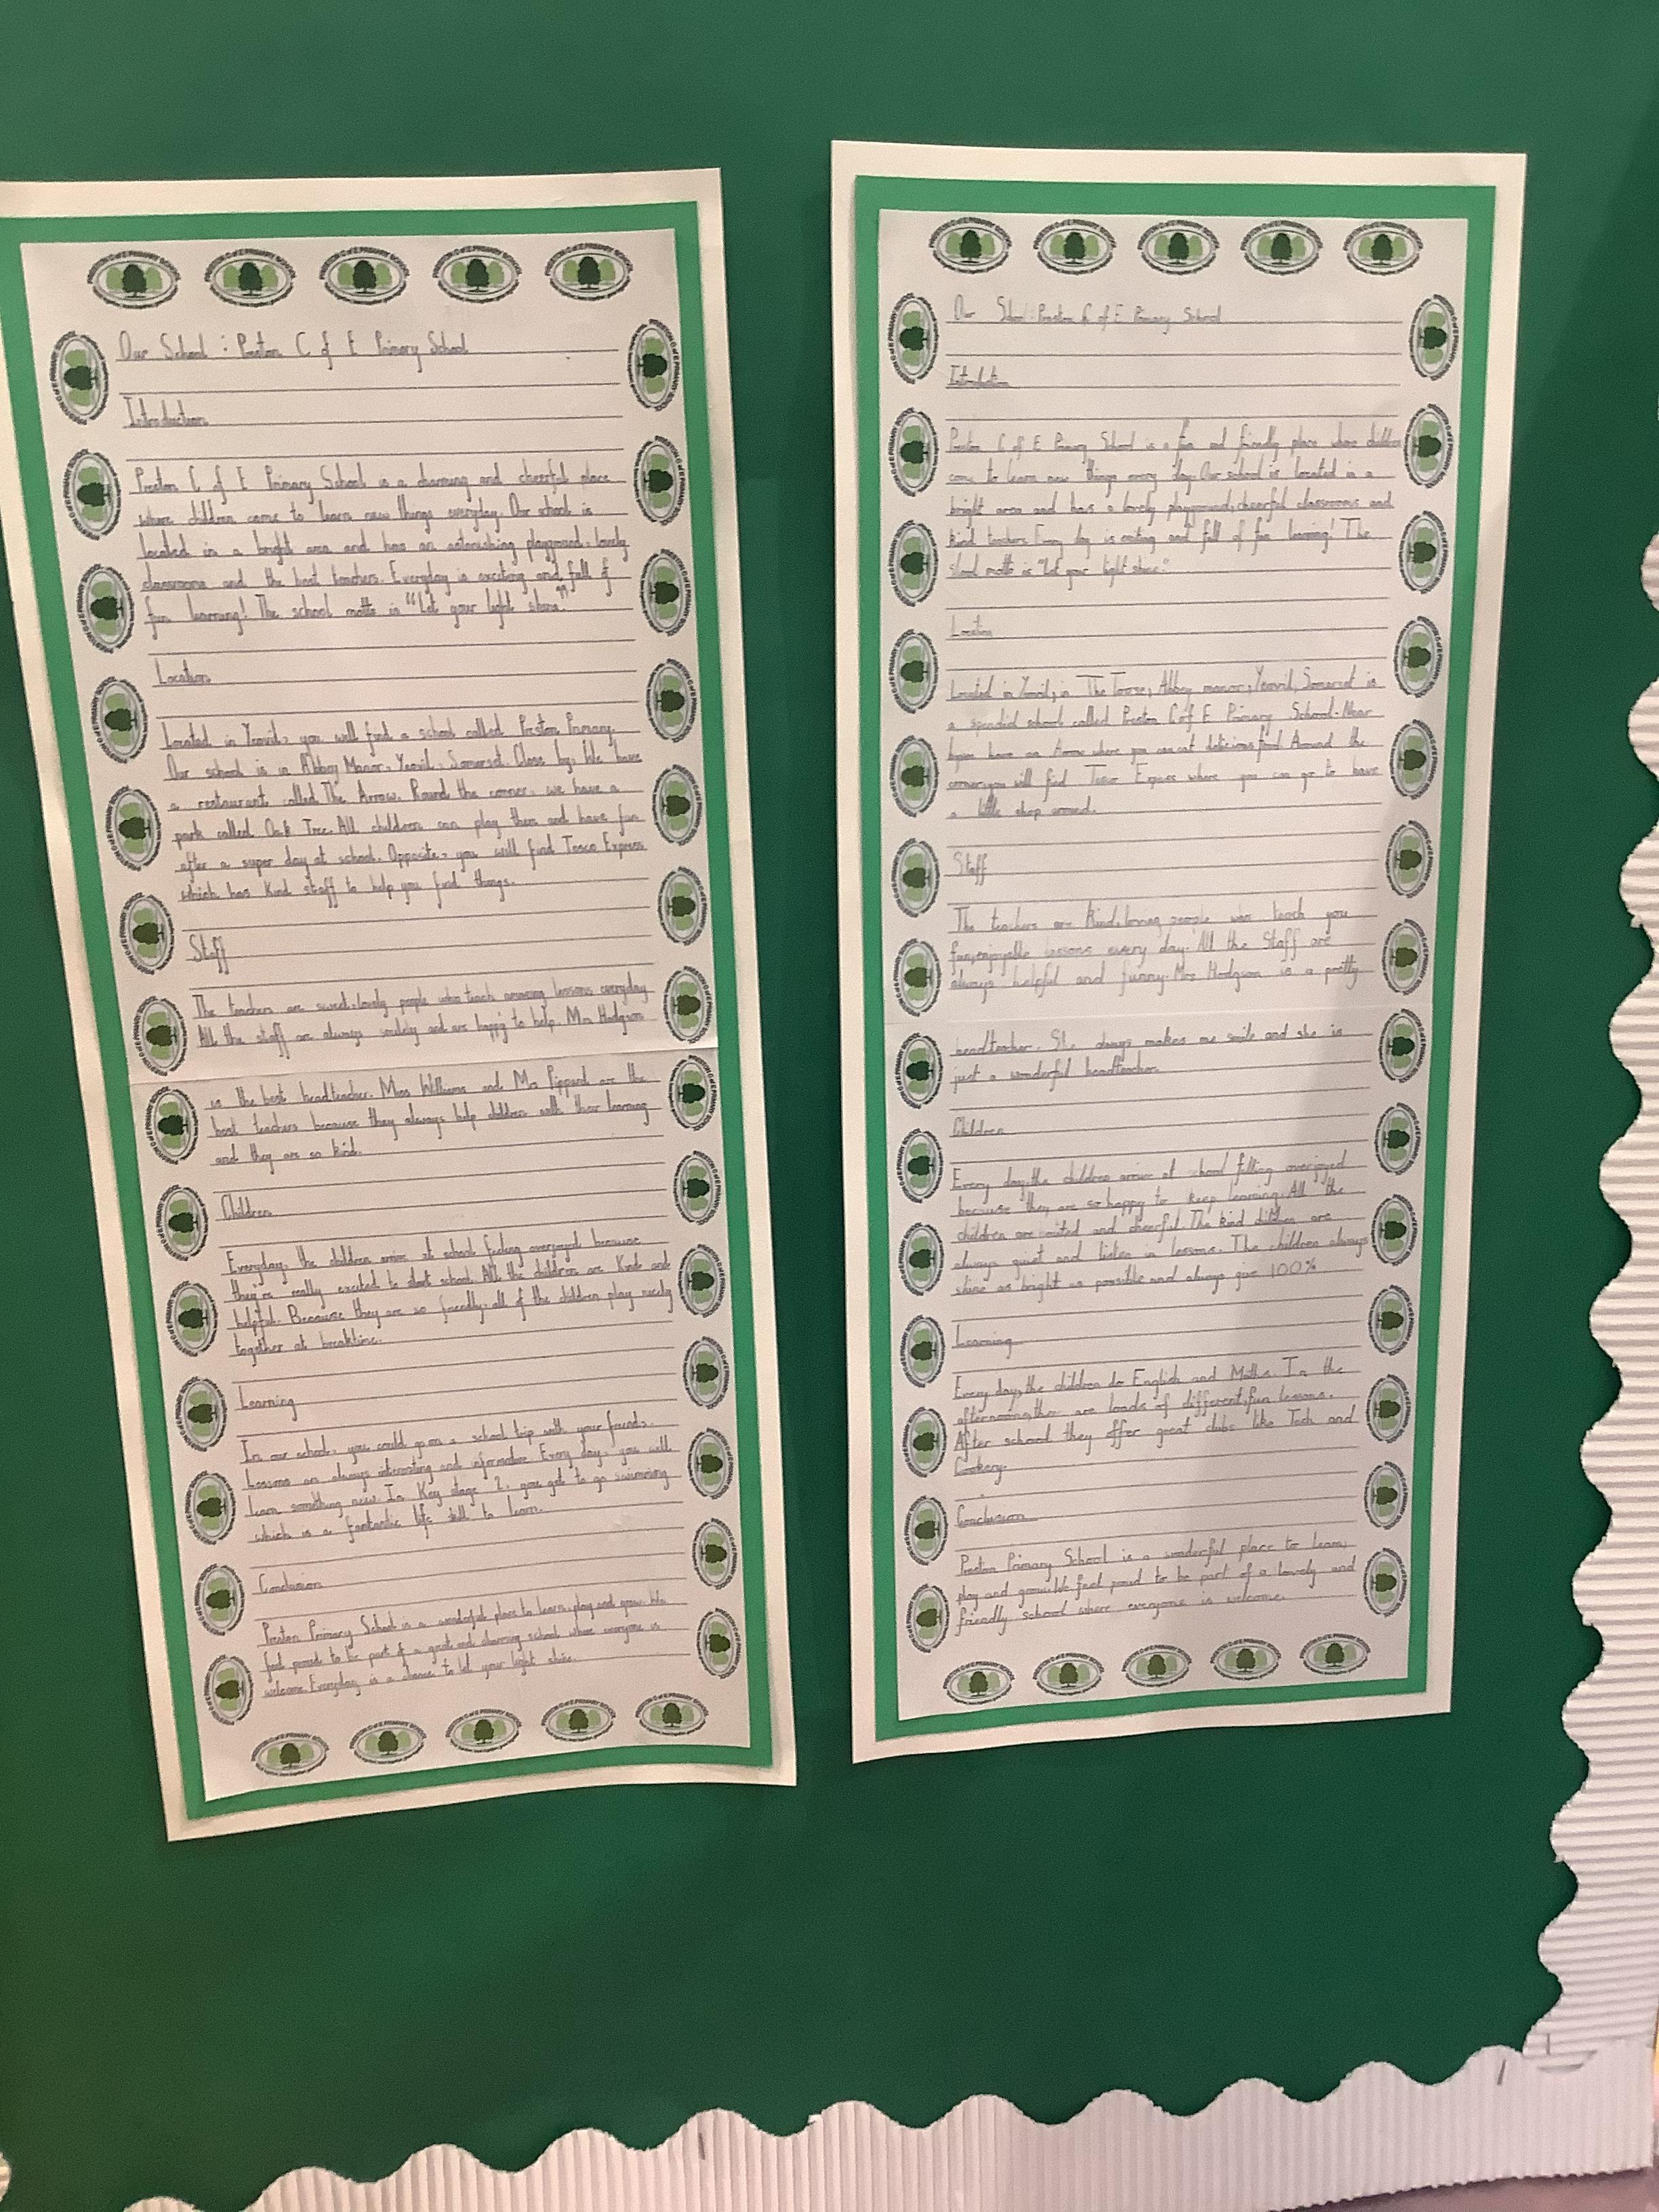 Our School : Preston C of E Primary School
Introduction
Preston C of E Primary School is a charming and cheerful place
where children come to learn new things everyday. Our school is
located in a bright area and has an astonishing playground, lovely
classrooms and the best teachers. Everyday is exciting and full of
fun learning! The school motto is "Let your light shine".
Location
Located in Yeovil, you will find a school called Preston Primary.
Our school is in Abbey Manor, Yeovil, Somerset. Close by, We have
a restaurant called The Arrow. Round the corner, we have a
park called Oak Tree. All children can play there and have fun
after a super day at school. Opposite, you will find Tesco Express
which has kind staff to help you find things.
Staff
The teachers are sweet, lovely people who teach amazing lessons everyday.
All the staff are always smiley and are happy to help. Mrs Hodgson
is the best headteacher. Miss Williams and Mrs Pippard are the
best teachers because they always help children with their learning
and they are so kind.
Children
Everyday, the children arrive at school feeling overjoyed because
they're really excited to start school. All the children are Kind and
helpful. Because they are so friendly, all of the children play nicely
together at breaktime.
Learning
In our school, you could go on a school trip with your friends.
Lessons are always interesting and informative. Every day, you will
learn something new. In Key stage 2, you get to go swimming
which is a fantastic life skill to learn.
Conclusion
Preston Primary School is a wonderful place to learn, play and grow. We
feel proud to be part of a great and charming school where everyone is
welcome. Everyday is a chance to let your light shine.
Our School: Preston C of E Primary School
Introduction
Preston C of E Primary School is a fun and friendly place where children
come to learn new things every day. Our school is located in a
bright area and has a lovely playground, cheerful classrooms and
kind teachers. Every day is exciting and full of fun learning! The
school motto is "Let your light shine."
Location
Located in Yeovil, in The Abbey manor, Yeovil, Somerset is
a spendid school called Preston C of E Primary School. Near
have an Arrow where you can eat delicious food. Around the
corner, you will find Tesco Express where you can go to have
a little shop around.
Staff
The teachers are Kind, loving people who teach you
fun, enjoyable lessons every day. All the Staff are
always helpful and funny. Mrs Hodgson is a pretty
headteacher. She always makes me smile and she is
just a wonderful headteacher.
Children
Every day, the children arrive at school filling overjoyed
because they are so happy to keep learning. All the
children are excited and cheerful. The kind children are
always quiet and listen in lessons. The children always
shine as bright as possible and always give 100%
Learning
Every day, the children do English and Maths. In the
afternoons, there are loads of different, fun lessons.
After school they offer great clubs like Tech and
Cookery.
Conclusion
Preston Primary School is a wonderful place to learn,
play and grow. We feel proud to be part of a lovely and
friendly school where everyone is welcome.